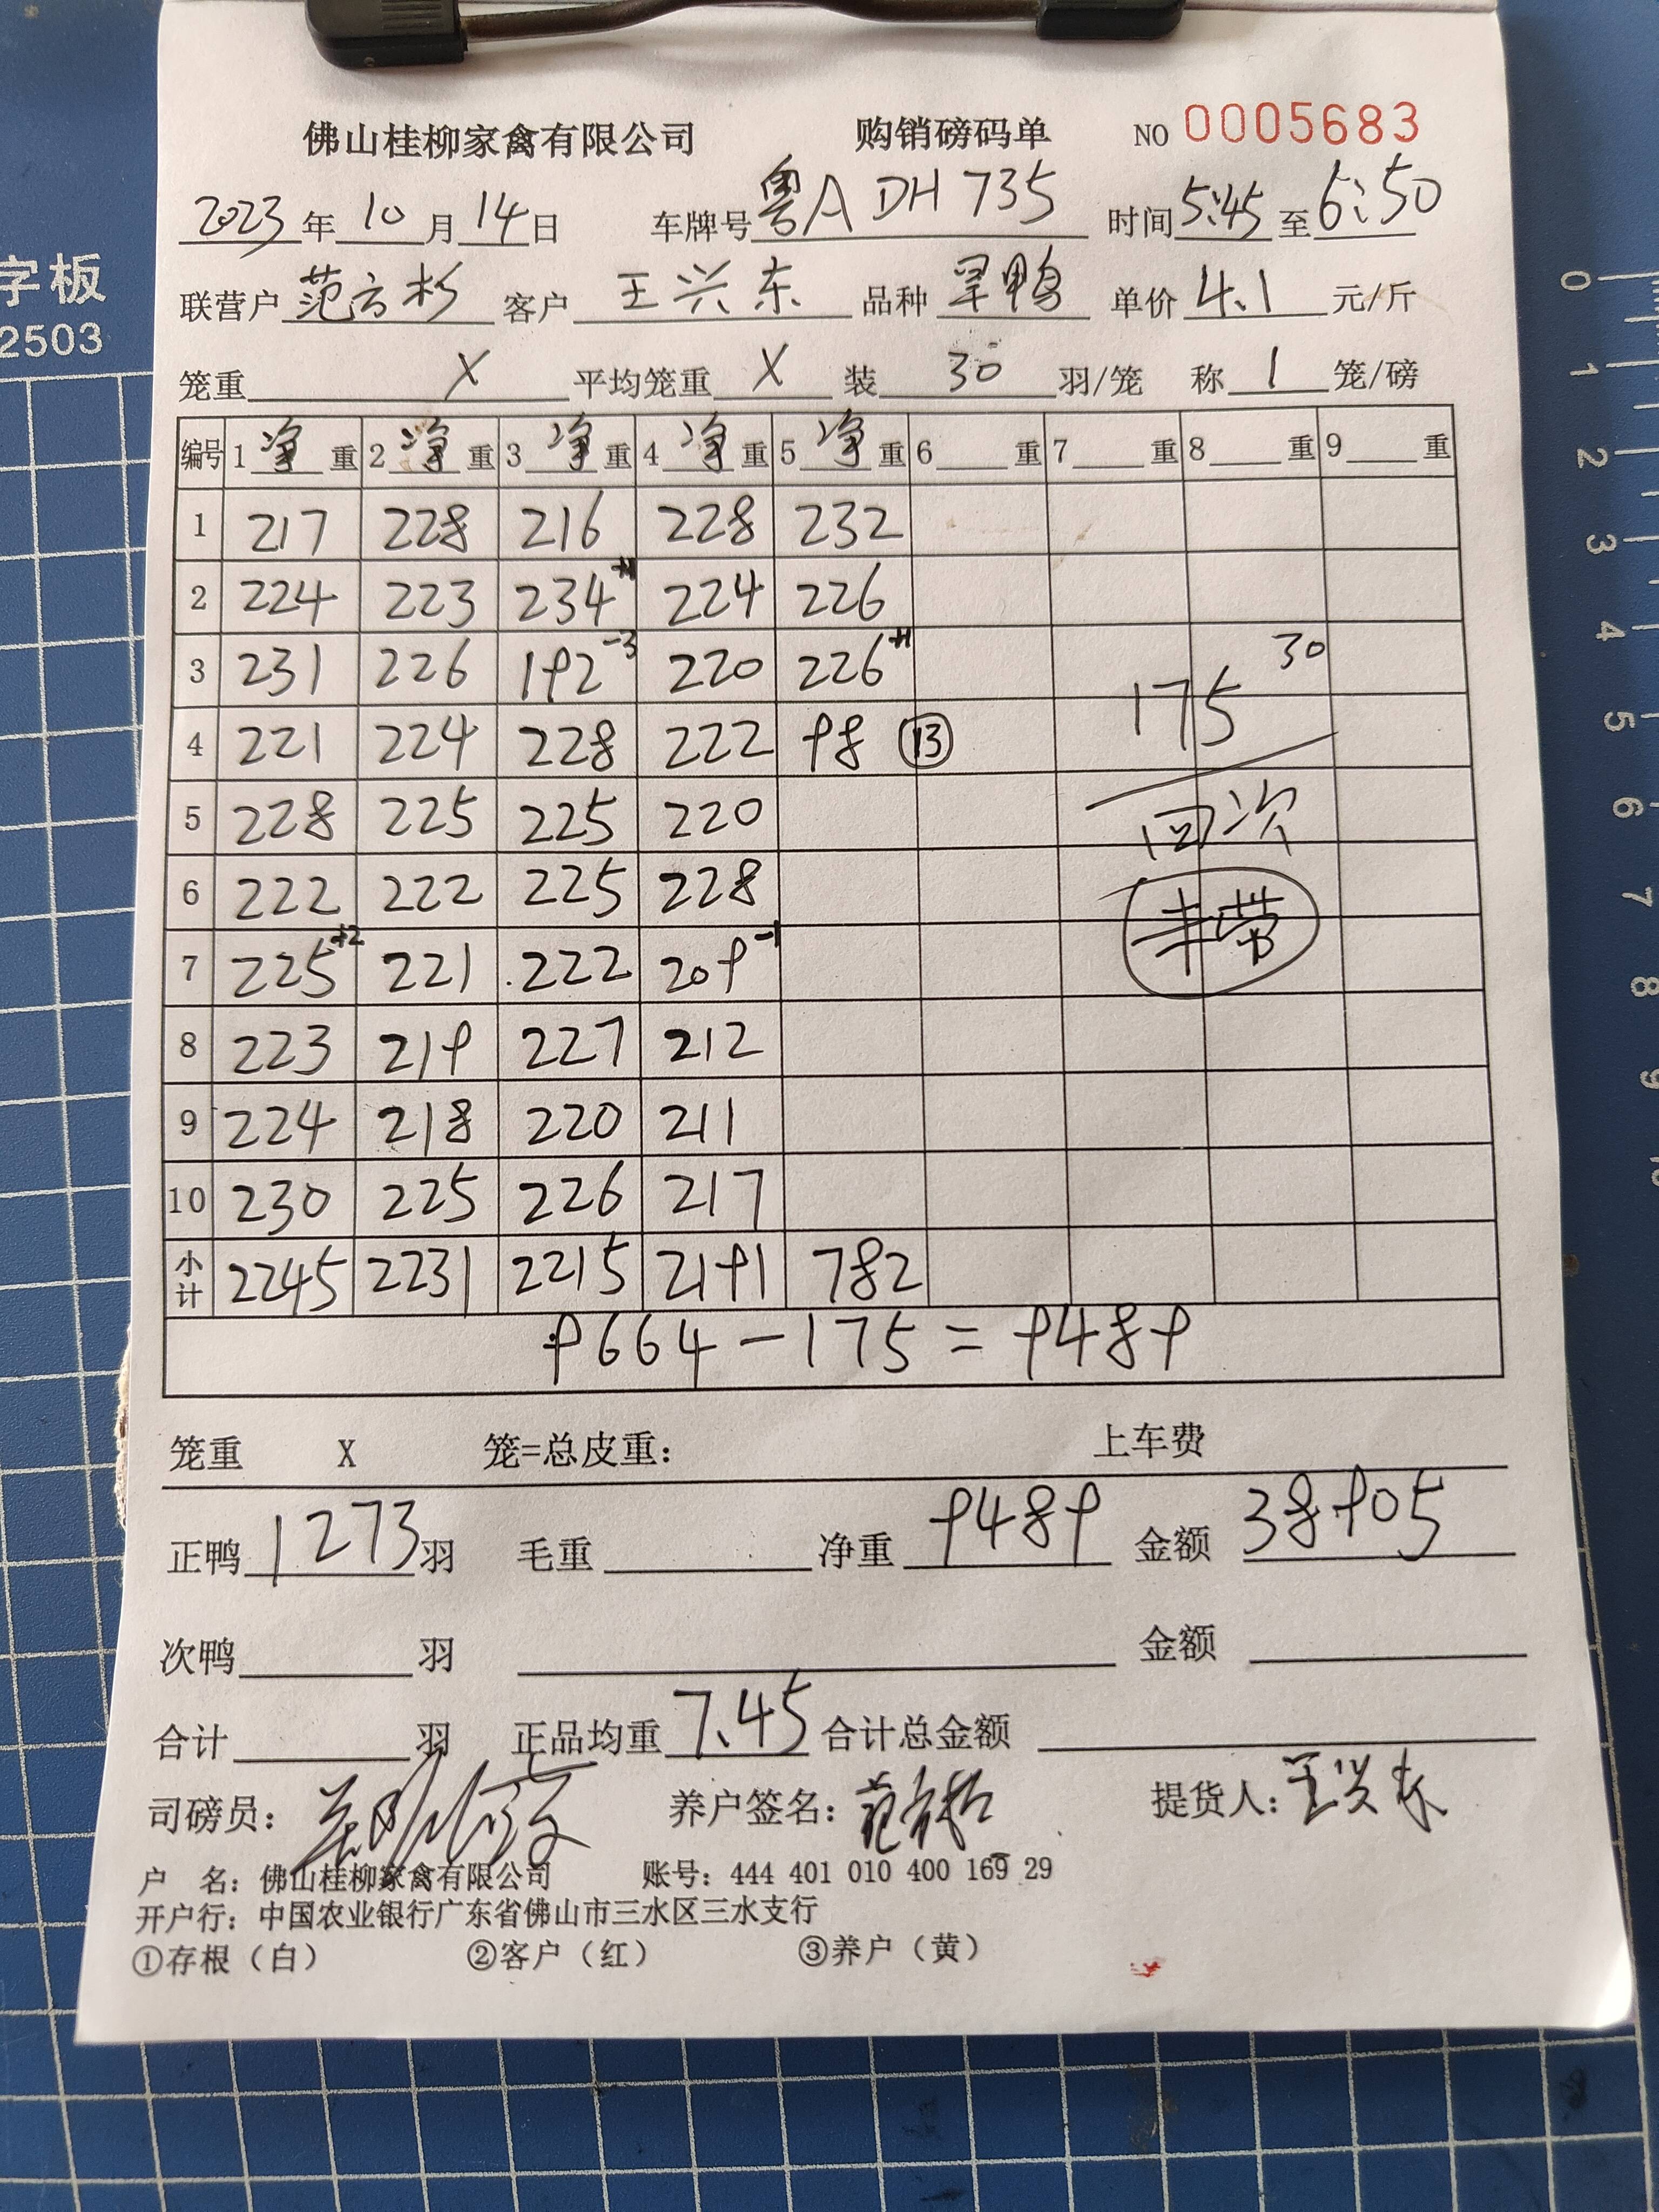 字板
2503
佛山桂柳家禽有限公司 购销磅码单 NO 0005683
2023年10月14日 车牌号 粤A DH 735 时间 5:45 至 6:50
联营户 范 客户 王兴东 品种 旱鸭 单价 4.1 元/斤
笼重 X 平均笼重 X 装 30 羽/笼 称 1 笼/磅
编号 1 净 重 2 净 重 3 净 重 4 净 重 5 净 重 6 重 7 重 8 重 9 重
1 217 228 216 228 232
2 224 223 234 +1 224 226
3 231 226 192 -3 220 226 +1 30
4 221 224 228 222 98 ⑬ 175
5 228 225 225 220 回次
6 222 222 225 228
7 225 +2 221 222 209 -1 丰带
8 223 219 227 212
9 224 218 220 211
10 230 225 226 217
小计 2245 2231 2215 2191 782
9664-175=9489
笼重 X 笼=总皮重: 上车费
正鸭 1273 羽 毛重 净重 9489 金额 38905
次鸭 羽 金额
合计 羽 正品均重 7.45 合计总金额
司磅员: 养户签名: 范 提货人: 王兴东
户 名: 佛山桂柳家禽有限公司 账号: 444 401 010 400 169 29
开户行: 中国农业银行广东省佛山市三水区三水支行
①存根(白) ②客户(红) ③养户(黄)
0
1
2
3
4
5
6
7
8
9
10